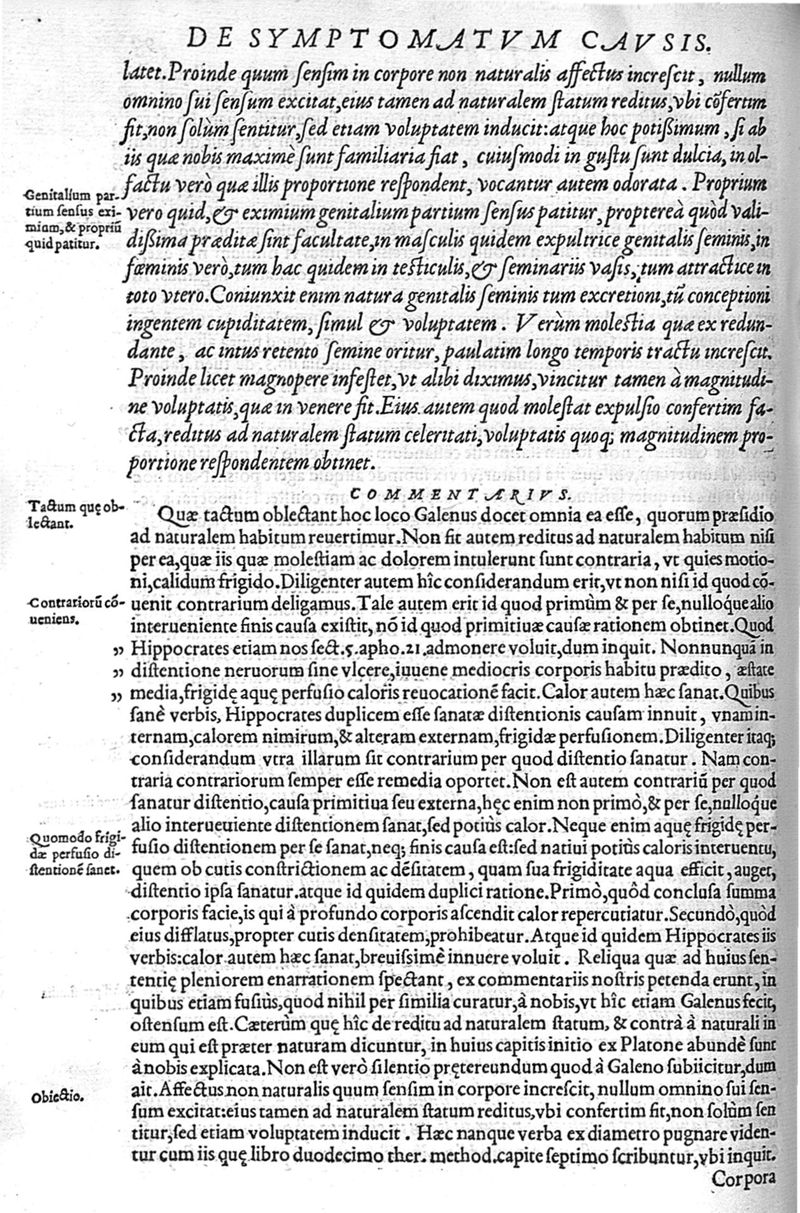 DE SYMPTOMATVM CAVSIS.
latet. Proinde quum sensim in corpore non naturalis affectus increscit, nullum
omnino sui sensum excitat, eius tamen ad naturalem statum reditus, vbi cõfertim
fit, non solùm sentitur, sed etiam voluptatem inducit: atque hoc potißimum, si ab
iis quæ nobis maximè sunt familiaria fiat, cuiusmodi in gustu sunt dulcia, in ol-
factu verò quæ illis proportione respondent, vocantur autem odorata. Proprium
Genitalium par-
tium sensus exi-
mium, & propriũ
quid patitur.
vero quid, & eximium genitalium partium sensus patitur, propterea quòd vali-
dißima præditæ sint facultate, in masculis quidem expultrice genitalis seminis, in
fœminis verò, tum hac quidem in testiculis, & seminariis vasis, tum attractice in
toto vtero. Coniunxit enim natura genitalis seminis tum excretioni, tũ conceptioni
ingentem cupiditatem, simul & voluptatem. Verùm molestia quæ ex redun-
dante, ac intus retento semine oritur, paulatim longo temporis tractu increscit.
Proinde licet magnopere infestet, vt alibi diximus, vincitur tamen à magnitudi-
ne voluptatis, quæ in venere fit. Eius autem quod molestat expulsio confertim fa-
cta, reditus ad naturalem statum celeritati, voluptatis quoq; magnitudinem pro-
portione respondentem obtinet.
COMMENTARIVS.
Tactum quę ob-
lectant.
Quæ tactum oblectant hoc loco Galenus docet omnia ea esse, quorum præsidio
ad naturalem habitum reuertimur. Non fit autem reditus ad naturalem habitum nisi
per ea, quæ iis quæ molestiam ac dolorem intulerunt sunt contraria, vt quies motio-
ni, calidum frigido. Diligenter autem hîc considerandum erit, vt non nisi id quod cõ-
Contrariorũ cõ-
ueniens.
uenit contrarium deligamus. Tale autem erit id quod primùm & per se, nulloque alio
interueniente finis causa existit, nõ id quod primitiuæ causæ rationem obtinet. Quod
" Hippocrates etiam nos sect. 5. apho. 21. admonere voluit, dum inquit. Nonnunquã in
" distentione neruorum sine vlcere, iuuene mediocris corporis habitu prædito, æstate
" media, frigidę aquę perfusio caloris reuocationẽ facit. Calor autem hæc sanat. Quibus
sanè verbis, Hippocrates duplicem esse sanatæ distentionis causam innuit, vnam in-
ternam, calorem nimirum, & alteram externam, frigidæ perfusionem. Diligenter itaq;
considerandum vtra illarum sit contrarium per quod distentio sanatur. Nam con-
traria contrariorum semper esse remedia oportet. Non est autem contrariũ per quod
sanatur distentio, causa primitiua seu externa, hęc enim non primò, & per se, nulloque
alio interueniente distentionem sanat, sed potiùs calor. Neque enim aquę frigidę per-
Quomodo frigi-
dæ perfusio di-
stentionẽ sanet.
fusio distentionem per se sanat, neq; finis causa est: sed natiui potiùs caloris interuentu,
quem ob cutis constrictionem ac dẽsitatem, quam sua frigiditate aqua efficit, auget,
distentio ipsa sanatur. atque id quidem duplici ratione. Primò, quôd conclusa summa
corporis facie, is qui à profundo corporis ascendit calor repercutiatur. Secundò, quòd
eius difflatus, propter cutis densitatem, prohibeatur. Atque id quidem Hippocrates iis
verbis: calor autem hæc sanat, breuissimè innuere voluit. Reliqua quæ ad huius sen-
tentię pleniorem enarrationem spectant, ex commentariis nostris petenda erunt, in
quibus etiam fusiùs, quod nihil per similia curatur, à nobis, vt hîc etiam Galenus fecit,
ostensum est. Cæterùm quę hîc de reditu ad naturalem statum, & contrà à naturali in
eum qui est præter naturam dicuntur, in huius capitis initio ex Platone abundè sunt
à nobis explicata. Non est verò silentio prętereundum quod à Galeno subiicitur, dum
Obiectio.
ait. Affectus non naturalis quum sensim in corpore increscit, nullum omnino sui sen-
sum excitat: eius tamen ad naturalem statum reditus, vbi confertim fit, non solùm sen
titur, sed etiam voluptatem inducit. Hæc nanque verba ex diametro pugnare viden-
tur cum iis quę libro duodecimo ther. method. capite septimo scribuntur, vbi inquit.
Corpora